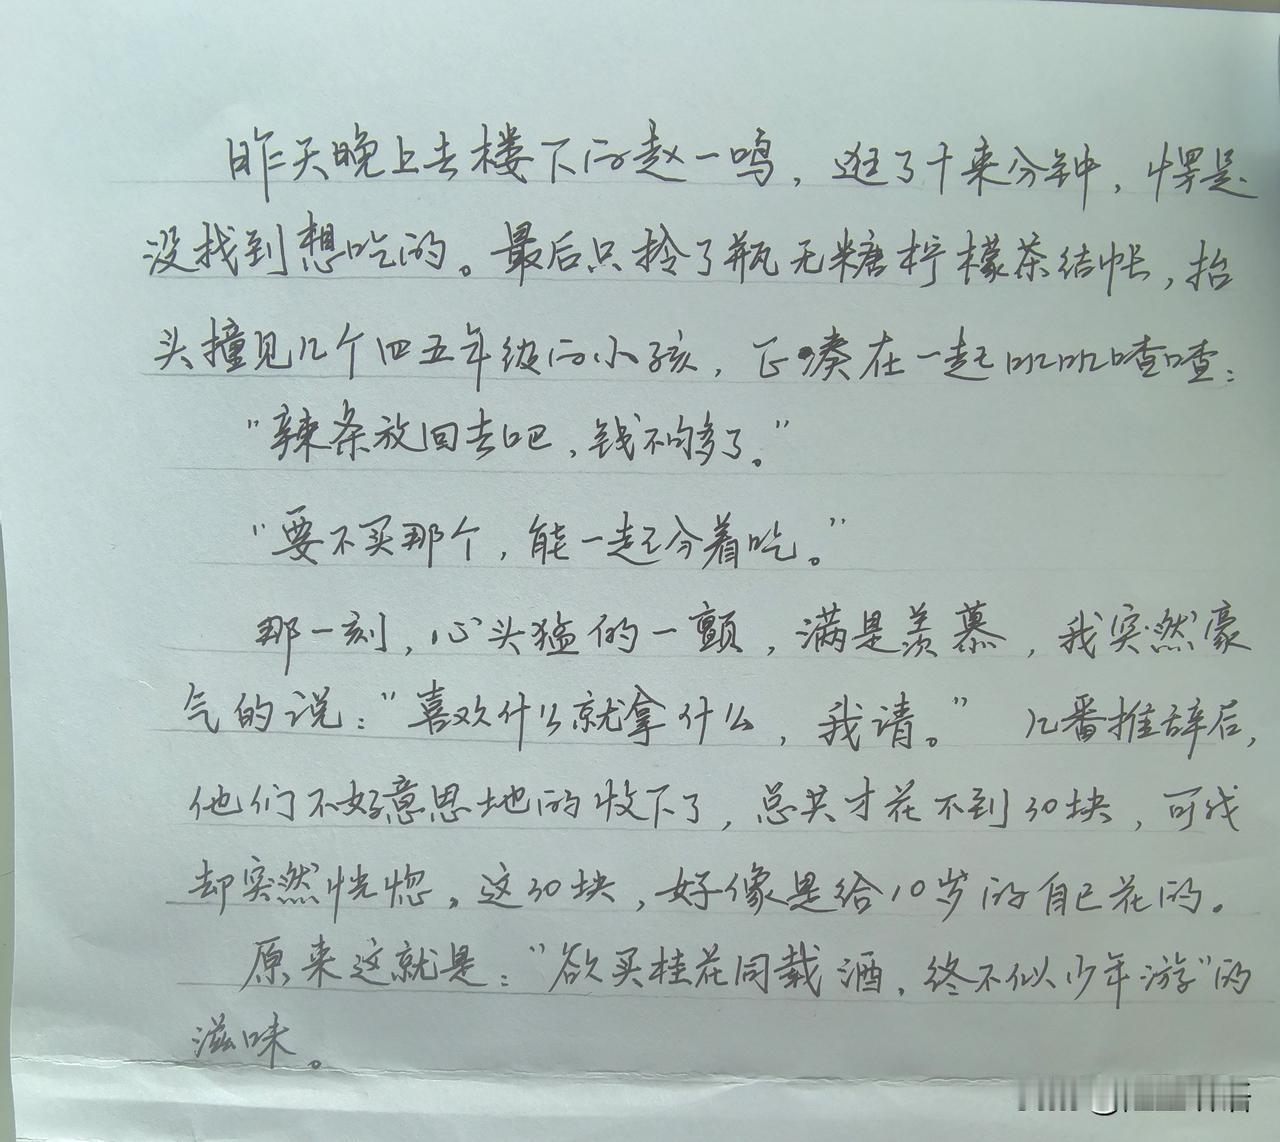 昨天晚上去楼下的赵一鸣，逛了十来分钟，愣是
没找到想吃的。最后只拎了瓶无糖柠檬茶结帐，抬
头撞见几个四五年级的小孩，正凑在一起叽叽喳喳：
"辣条放回去吧，钱不够多了。"
"要不买那个，能一起分着吃。"
那一刻，心头猛的一颤，满是羡慕，我突然豪
气的说："喜欢什么就拿什么，我请。" 几番推辞后，
他们不好意思地的收下了，总共才花不到30块，可我
却突然恍惚。这30块，好像是给10岁的自己花的。
原来这就是："欲买桂花同载酒，终不似少年游"的
滋味。